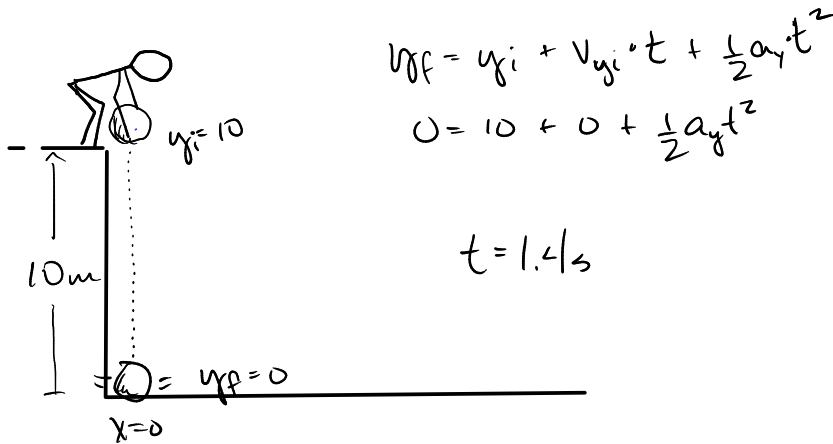 yf = yi + Vyi · t + 1/2 ay · t²
0 = 10 + 0 + 1/2 ay t²
yi = 10
t = 1.4s
10m
yf = 0
x=0